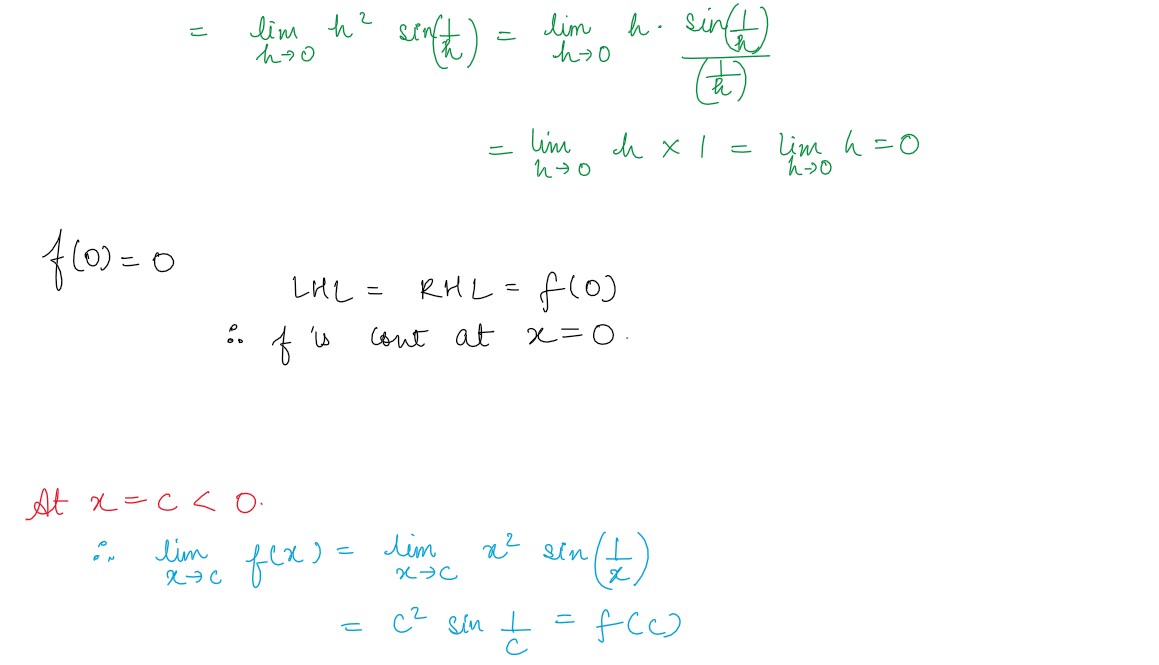 = lim h→0 h² sin(1/h) = lim h→0 h · sin(1/h) / (1/h)
= lim h→0 h × 1 = lim h→0 h = 0
f(0) = 0
LHL = RHL = f(0)
∴ f is cont at x = 0.
At x = c < 0.
∴ lim x→c f(x) = lim x→c x² sin(1/x)
= c² sin 1/c = f(c)